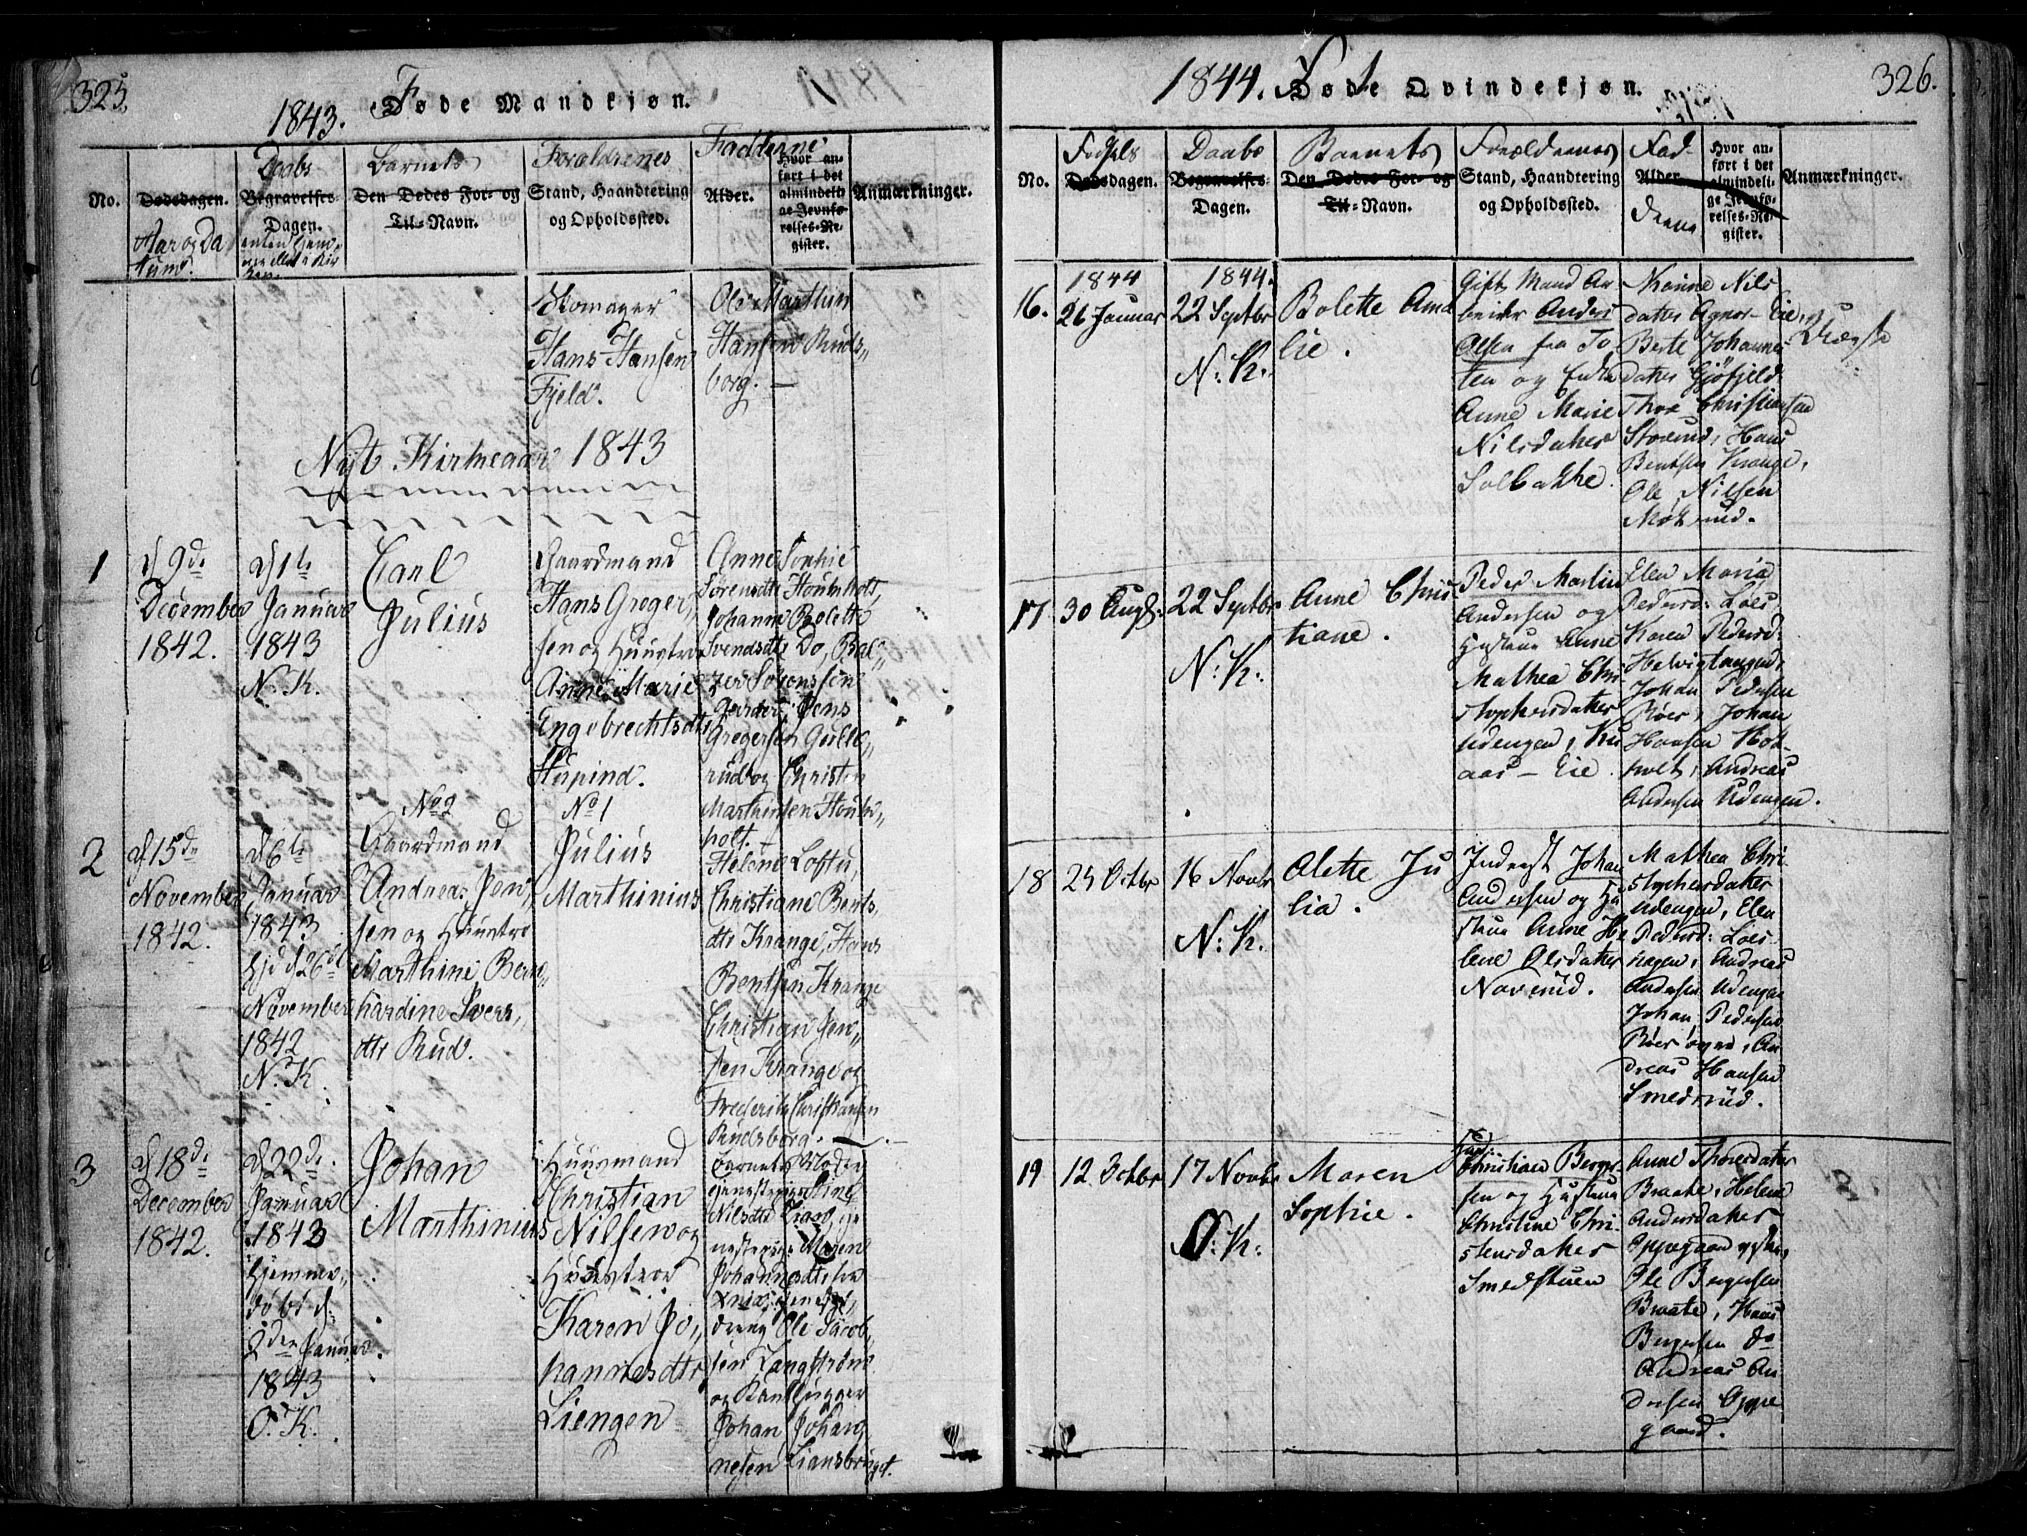 325.
1843. Føde Mandkjøn.
No.
Dødsdagen.
Aar og Da
tum.
Daabs
Begravelses-
Dagen.
Barnets
Den Dødes For- og
Til-Navn.
Forældrenes
Stand, Haandtering
og Opholdssted.
Fadderne
Alder.
Hvor an-
ført i det
almindeli-
ge Jevnfø-
relses-Re-
gister.
Anmærkninger.
Skomager
Hans Hansen
Fjeld.
Ole Marthin
Hansen Ruds-
borg. —
Nyt Kirkeaar 1843
1
d 9de
December
1842.
d 1te
Januar
1843
N. K.
Carl
Julius
Gaardmand
Hans Greger,,
sen og Huustro
Anne Marie
Engebrechtsdtr
Stupind.
Anne Sophie
Sørensdtr
Johanne Bolette
Svendsdtr Do, Bal,,
zer Sørenssen
Jens
Gregersen Gulle,,
rud og Christen
Marthinsen
holt.
2
d 15de
November
1842.
d 6te
Januar
1843
Hjd d 26de
November
1842
N. K.
No 2
Gaardmand
Andreas Jen,,
sen og Huustro
Marthine Bern,,
hardine Ivers,,
dtr Rud.
No 1
Julius
Marthinius
Helene Loftu,
Christiane Bents,
dtr Krange, Hans
Bentsen Krange
Christian Jen,,
sen Krange og
Frederik Christiansen
Rudsborg. —
3
d 18de
December
1842.
d 22de
Januar
1843
Hjemme,,
døbt d:
2den Januar
1843
O. K.
Johan
Marthinius
Huusmand
Christian
Nilsen og
Huustroe
Karen Jo,,
hannesdtr
Liengen
Barnets Moder
Nilsdtr
Maren
Johannesdtr
Ole Jacob,,
sen Langstrøm
og
Johan Johan,
nesen Liansbriget.
326.
1844. Føde Qvindekjøn.
No.
Fødsels
Dødsdagen.
Daabs
Begravelses-
Dagen.
Barnets
Den Dødes For- og
Til-Navn.
Forældrenes
Stand, Haandtering
og Opholdssted.
Fad-
Alder.
derne
Hvor an-
ført i det
almindeli-
ge Jevnfø-
relses-Re-
gister.
Anmærkninger.
16.
1844
26 Januar
1844.
22 Septbr
N: K.
Bolette Ama
lie.
Gift Mand Ar
beider Anders
Olsen fra To
ten og Enke
Anne Marie
Nilsdatter
Solbakke.
Karine Nils
datter Agnor-Eie,
Berte Johannes-
datter Gjøfjeld
Thor Christiansen
Storrud, Hans
Bentsen Krange,
Ole Nilsen
Mørkrud.
Uægte
17
30 Augs:
22 Septbr
N: K.
Anne Chris
tiane.
Peder Martin
Andersen og
Hustrue Anne
Mathea Chri
stophersdatter
Udengen, Ku
aas - Eie.
Elen Maria
Pedersd: Loes
Karen Pedersd:
Helvigtangend,
Johan Pedersen
Røer, Johan
Hansen Kok-
holt, Andreas
Andersen Udengen.
18
25 Octbr
16 Novbr
N: K.
Alette Ju
lia.
Inderst Johan
Andersen og Hu
strue Anne He
lene Olsdatter
Naverud.
Mathea Chri
stophersdatter
Udengen, Elen
Pedersd: Loes-
hagen, Andreas
Andersen Udengen
Johan Pedersen
Røer øgrd, An
dreas Hansen
Smedsrud.
19
12 Octbr
17 Novbr
O: K:
Maren
Sophie.
Christian Berger-
sen og Hustrue
Christine Chri-
stensdatter
Smedstuen
Anne Thoresdatter
Braate, Helene
Andersdatter
Oppegaard
Ole Bergersen
Braate, Hans
Bergersen do
Andreas An
dersen Oppe
gaard.